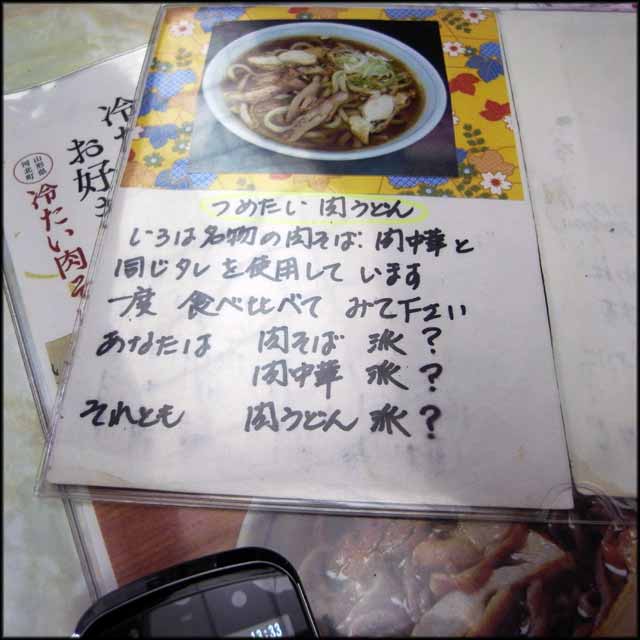 つめたい肉うどん
いろは名物の肉そば、肉中華と
同じタレを使用しています
一度 食べ比べて みて下さい
あなたは 肉そば 派?
肉中華 派?
それとも 肉うどん 派?
お好
山形県
河北町
冷たい肉そ